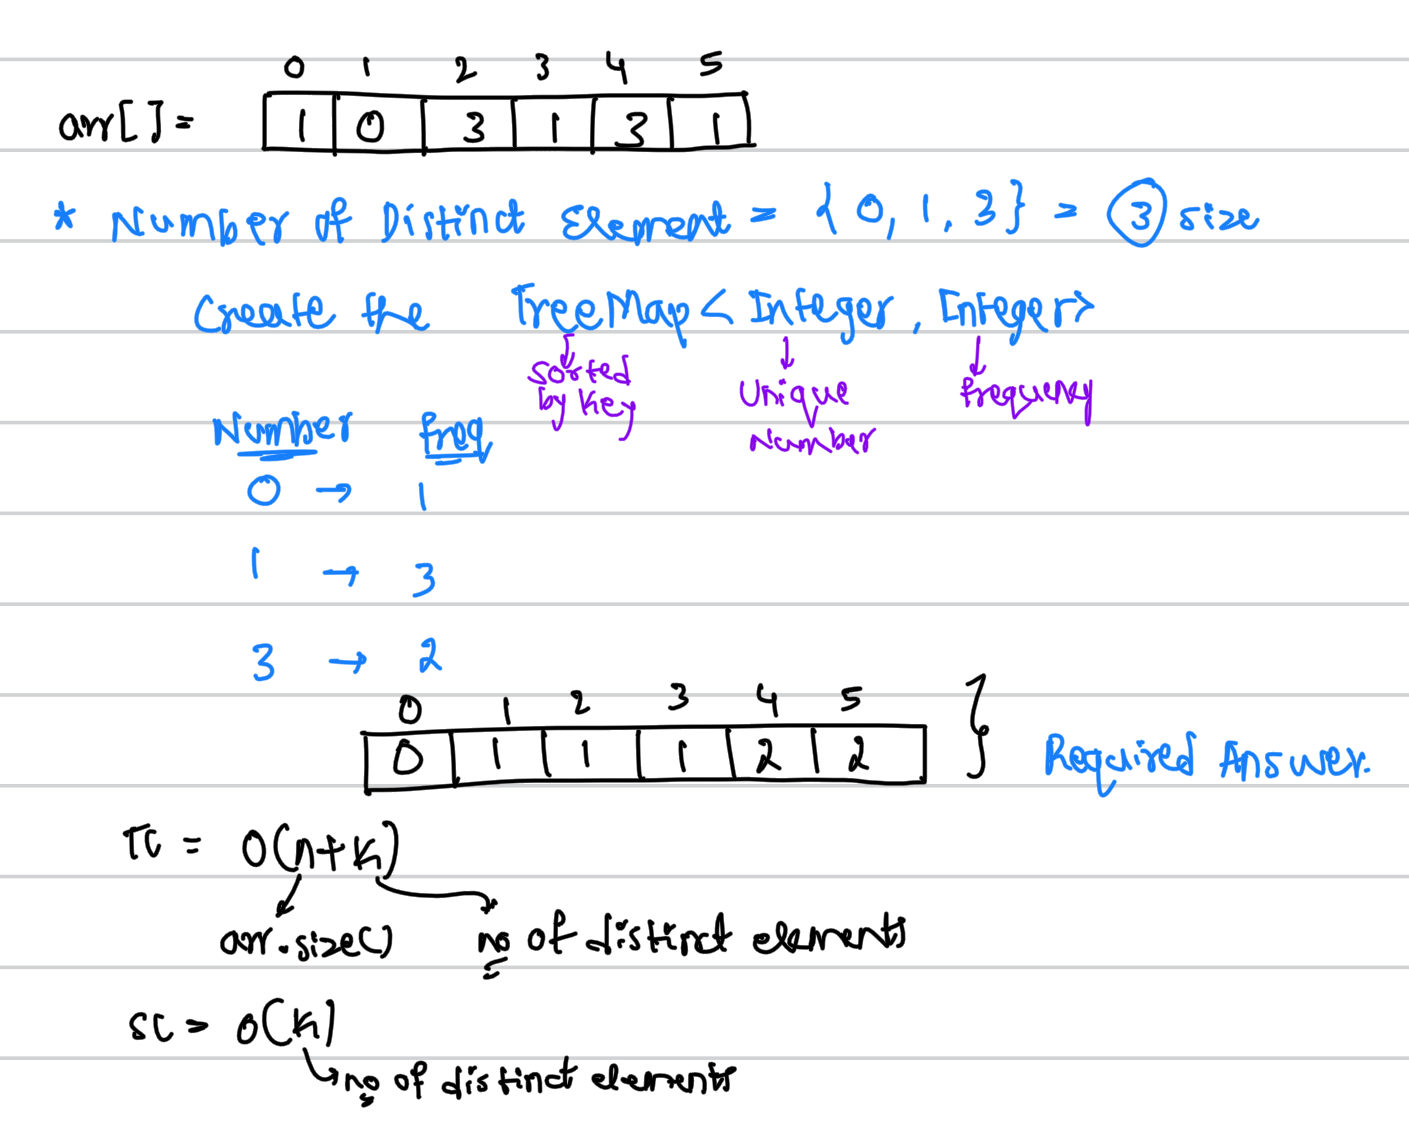 0 1 2 3 4 5
arr[] = 1 0 3 1 3 1
* Number of Distinct Element = {0, 1, 3} = 3 size
Create the TreeMap<Integer, Integer>
Sorted by Key
Unique Number
frequency
Number freq
0 → 1
1 → 3
3 → 2
0 1 2 3 4 5
0 1 1 1 2 2 } Required Answer.
TC = O(n+k)
arr.size() no of distinct elements
SC = O(k)
no of distinct elements